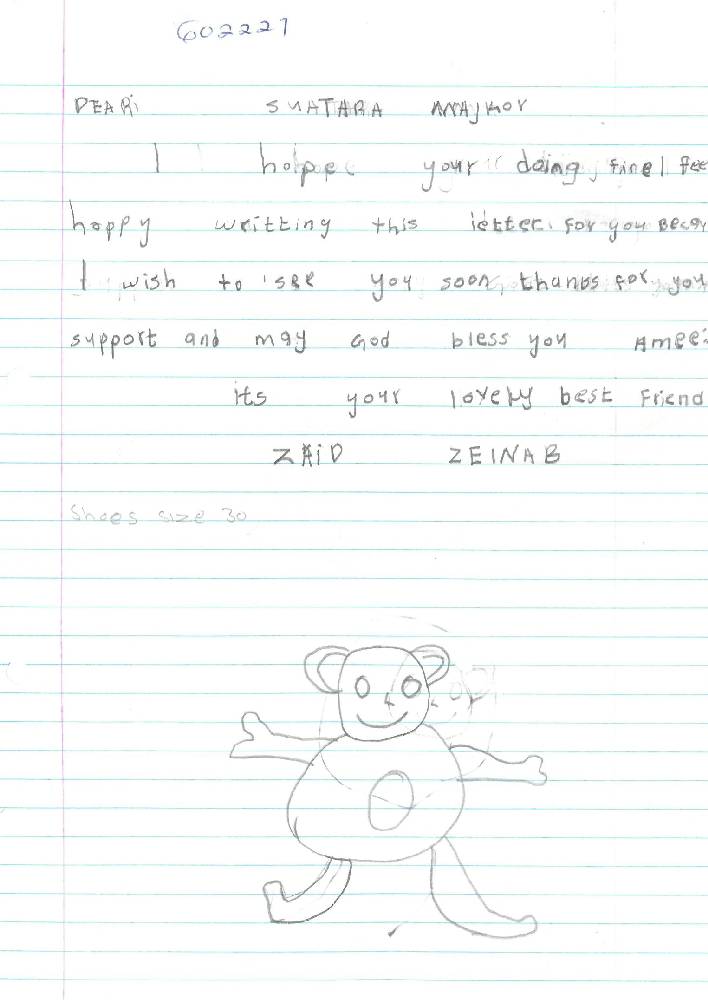 602221
DEAR: SUATARA MAJKOR
I hope your doing fine I fee
happy writting this letter. for you Becau
I wish to see you soon, thanks for you
support and may God bless you Amee
its your lovely best Friend
ZAiD ZEINAB
Shoes size 30